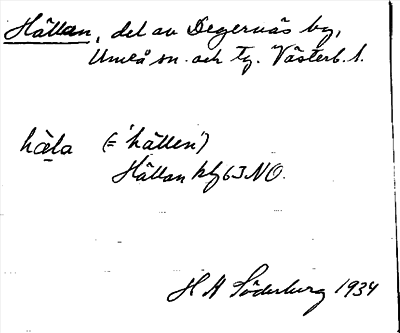 Hällan, del av Degernäs by,
Umeå sn. och tg. Västerb. l.
hȧ̱la (= 'hällen')
Hällan kbl 63 NO.
H A Söderberg 1934